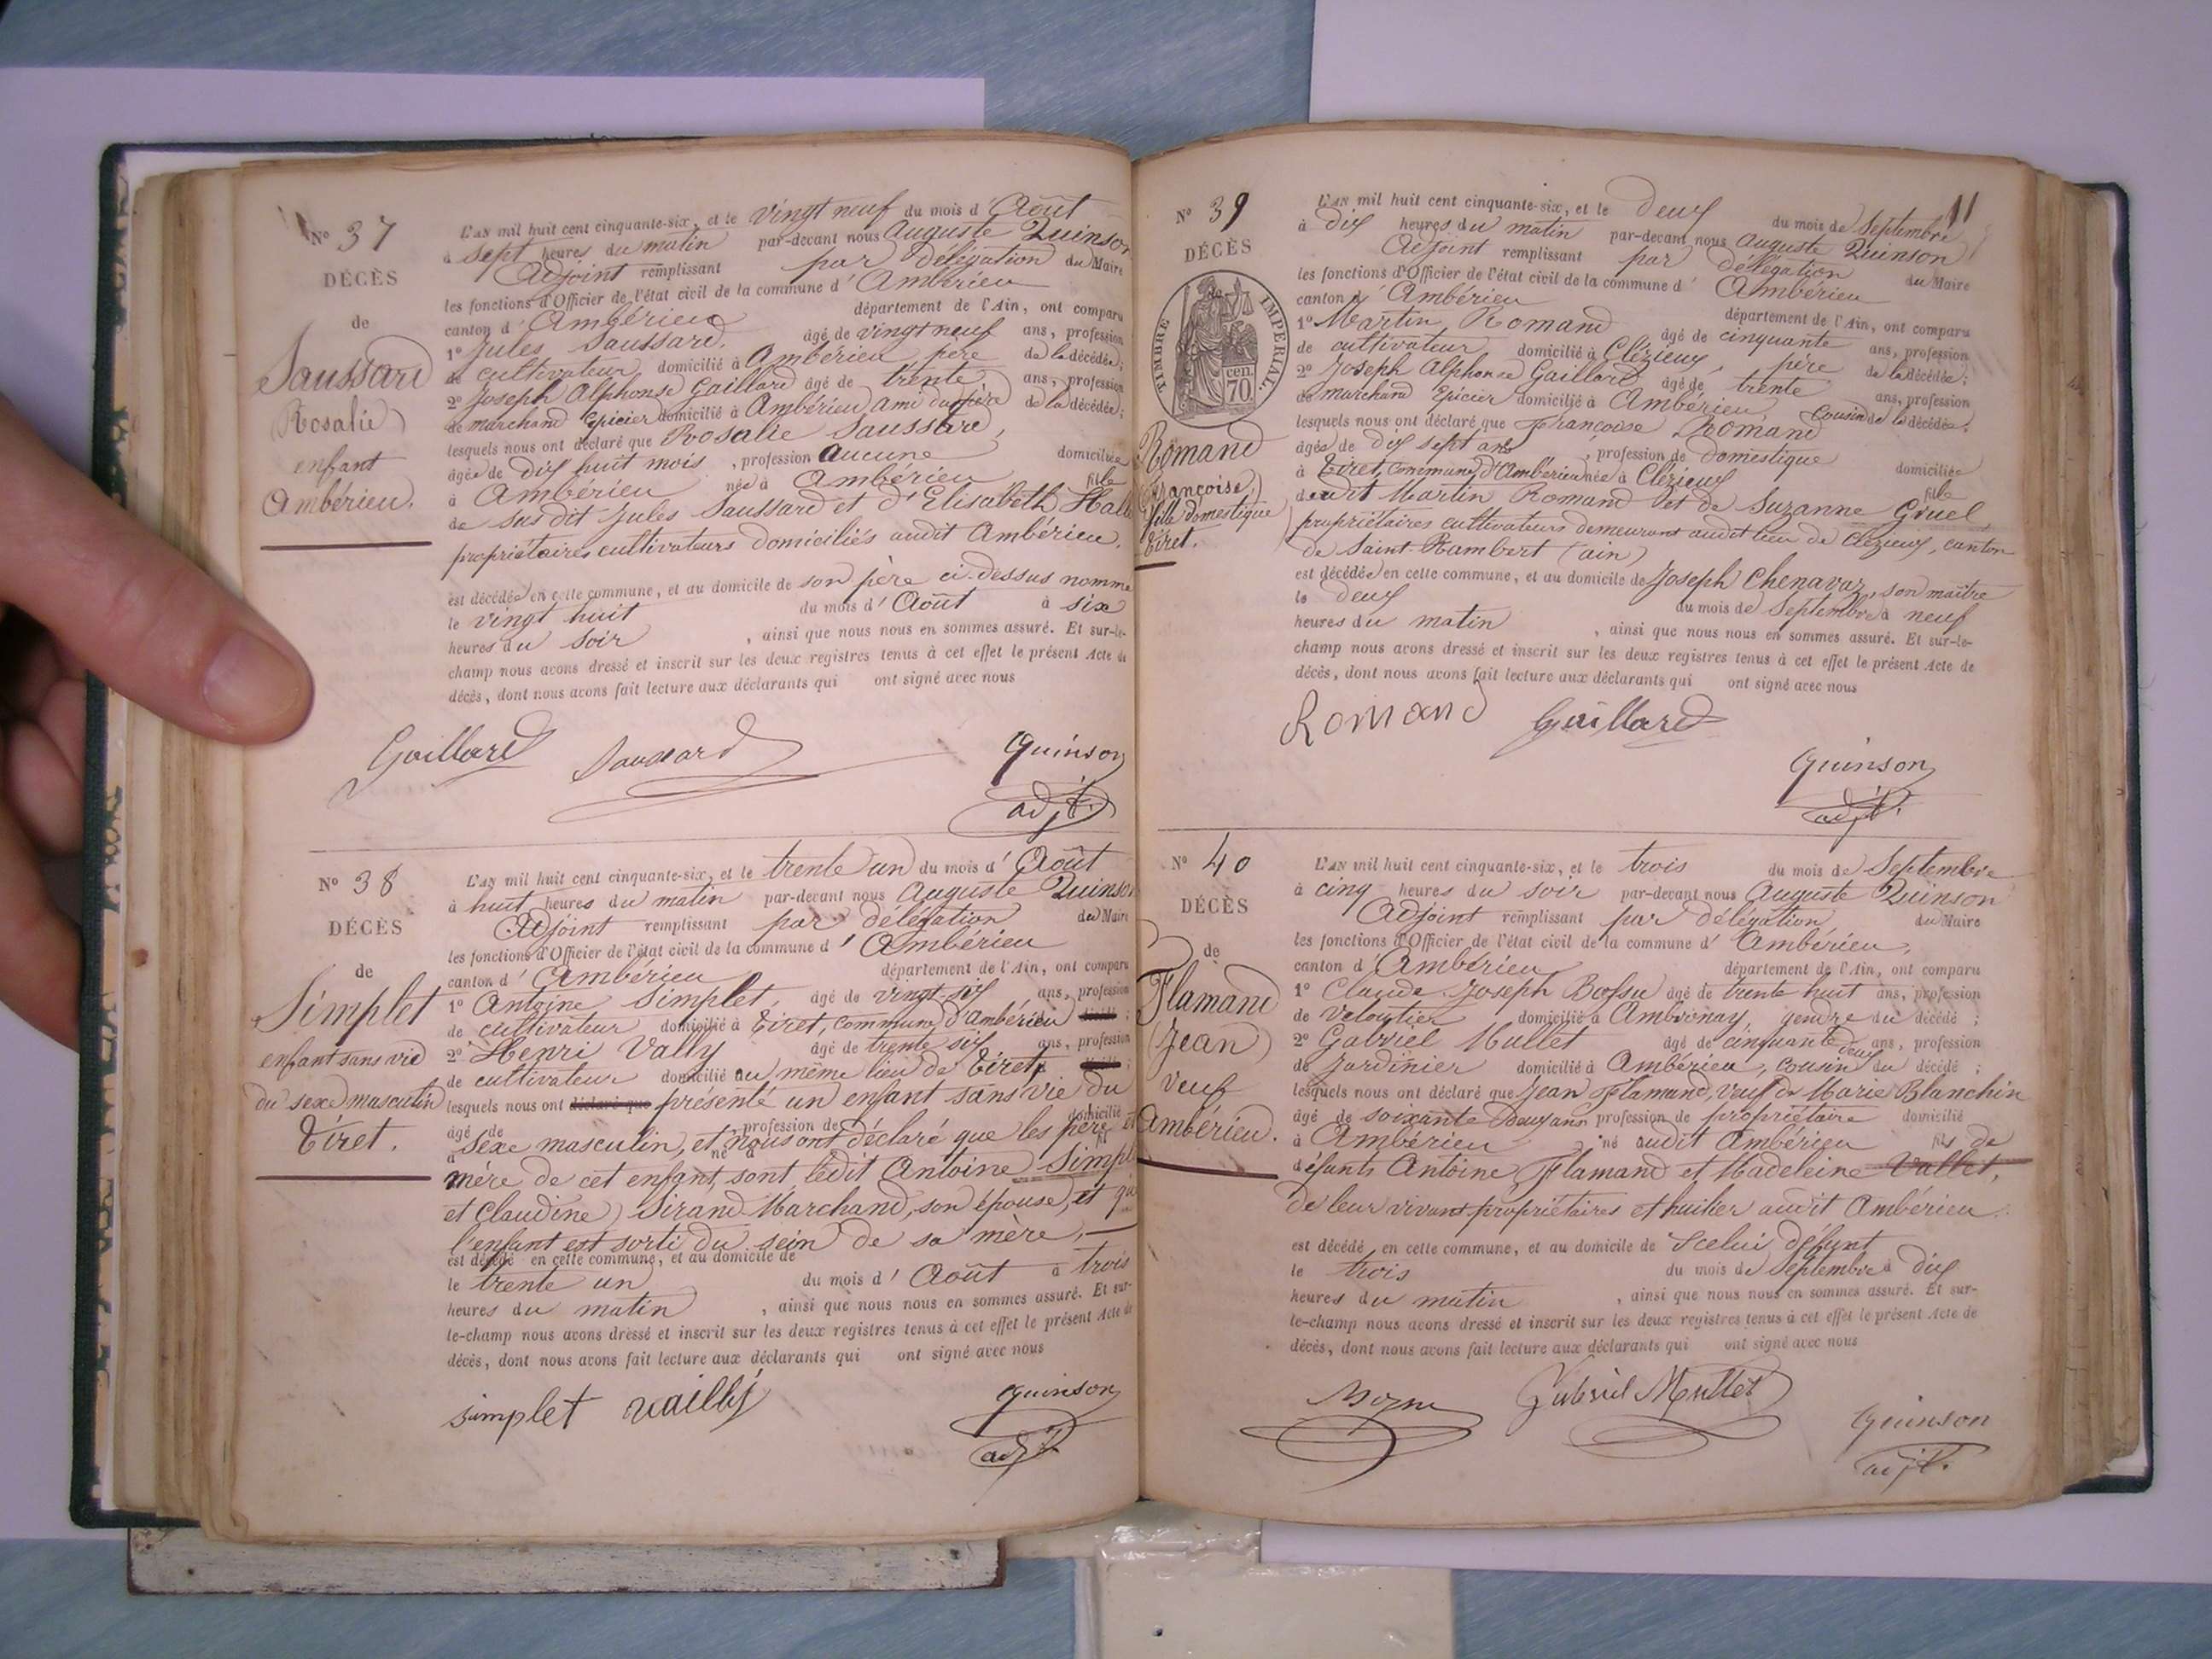 N° 37
DÉCÈS
de
Saussard
Rosalie
enfant
Ambérieu.
L'AN mil huit cent cinquante-six, et le vingt neuf du mois d'Août
à sept heures du matin par-devant nous Auguste Quinson
Adjoint remplissant par délégation du Maire
les fonctions d'Officier de l'état civil de la commune d'Ambérieu
canton d'Ambérieu département de l'Ain, ont comparu
1° Jules Saussard, âgé de vingt neuf ans, profession
de cultivateur, domicilié à Ambérieu, père de la décédée;
2° Joseph Alphonse Gaillard âgé de trente ans, profession
de marchand Epicier domicilié à Ambérieu ami du père de la décédée;
lesquels nous ont déclaré que Rosalie Saussard,
âgée de dix huit mois, profession aucune domiciliée
à Ambérieu née à Ambérieu fille
de susdit Jules Saussard et d'Elisabeth
propriétaires cultivateurs domiciliés audit Ambérieu.
est décédée en cette commune, et au domicile de son père ci-dessus nommé
le vingt huit du mois d'Août à six
heures du soir, ainsi que nous nous en sommes assuré. Et sur-le-
champ nous avons dressé et inscrit sur les deux registres tenus à cet effet le présent Acte de
décès, dont nous avons fait lecture aux déclarants qui ont signé avec nous
Gaillard Saussard Quinson
adjt.
N° 38
DÉCÈS
de
Simplet
enfant sans vie
du sexe masculin
Tiret.
L'AN mil huit cent cinquante-six, et le trente un du mois d'Août
à huit heures du matin par-devant nous Auguste Quinson
Adjoint remplissant par délégation du Maire
les fonctions d'Officier de l'état civil de la commune d'Ambérieu
canton d'Ambérieu département de l'Ain, ont comparu
1° Antoine Simplet, âgé de vingt-six ans, profession
de cultivateur domicilié à Tiret, commune d'Ambérieu
2° Henri Vally âgé de trente six ans, profession
de cultivateur domicilié au même lieu de Tiret,
lesquels nous ont déclaré que présenté un enfant sans vie du
âgé de profession de domicilié
sexe masculin, et nous ont déclaré que les père et
à né à fils
mère de cet enfant, sont ledit Antoine Simplet
et Claudine Sirand-Marchand, son épouse, et que
l'enfant est sorti du sein de sa mère,
est décédé en cette commune, et au domicile de
le trente un du mois d'Août à trois
heures du matin, ainsi que nous nous en sommes assuré. Et sur-
le-champ nous avons dressé et inscrit sur les deux registres tenus à cet effet le présent Acte de
décès, dont nous avons fait lecture aux déclarants qui ont signé avec nous
simplet vailly Quinson
adjt.
11
N° 39
DÉCÈS
de
TIMBRE IMPERIAL.
cen.
70.
Romand
Françoise,
fille domestique
Tiret.
L'AN mil huit cent cinquante-six, et le deux du mois de Septembre
à dix heures du matin par-devant nous Auguste Quinson
Adjoint remplissant par délégation du Maire
les fonctions d'Officier de l'état civil de la commune d'Ambérieu
canton d'Ambérieu département de l'Ain, ont comparu
1° Martin Romand âgé de cinquante ans, profession
de cultivateur domicilié à Clézieux, père de la décédée;
2° Joseph Alphonse Gaillard âgé de trente ans, profession
de marchand Epicier domicilié à Ambérieu, Cousin de la décédée;
lesquels nous ont déclaré que Françoise Romand
âgée de dix sept ans, profession de domestique domiciliée
à Tiret, commune d'Ambérieu née à Clézieux fille
dudit Martin Romand et de Suzanne Gruel
propriétaires cultivateurs demeurant audit lieu de Clézieux, canton
de Saint-Rambert (ain)
est décédée en cette commune, et au domicile de Joseph Chenavaz, son maître
le deux du mois de Septembre à neuf
heures du matin, ainsi que nous nous en sommes assuré. Et sur-le-
champ nous avons dressé et inscrit sur les deux registres tenus à cet effet le présent Acte de
décès, dont nous avons fait lecture aux déclarants qui ont signé avec nous
Romand Gaillard
Quinson
adjt.
N° 40
DÉCÈS
de
Flamand
Jean
Veuf
Ambérieu.
L'AN mil huit cent cinquante-six, et le trois du mois de Septembre
à cinq heures du soir par-devant nous Auguste Quinson
Adjoint remplissant par délégation du Maire
les fonctions d'Officier de l'état civil de la commune d'Ambérieu,
canton d'Ambérieu département de l'Ain, ont comparu
1° Claude Joseph Bossu âgé de trente huit ans, profession
de veloutier domicilié à Ambronay, gendre du décédé;
2° Gabriel Mullet âgé de cinquante deux ans, profession
de Jardinier domicilié à Ambérieu, cousin du décédé;
lesquels nous ont déclaré que Jean Flamand, veuf de Marie Blanchin
âgé de soixante deux ans profession de propriétaire domicilié
à Ambérieu, né audit Ambérieu fils de
défunts Antoine Flamand et Madeleine Vallet,
de leur vivant propriétaires et huilier audit Ambérieu.
est décédé en cette commune, et au domicile de Icelui défunt
le trois du mois de Septembre à dix
heures du matin, ainsi que nous nous en sommes assuré. Et sur-
le-champ nous avons dressé et inscrit sur les deux registres tenus à cet effet le présent Acte de
décès, dont nous avons fait lecture aux déclarants qui ont signé avec nous
Gabriel Mullet
Quinson
adjt.